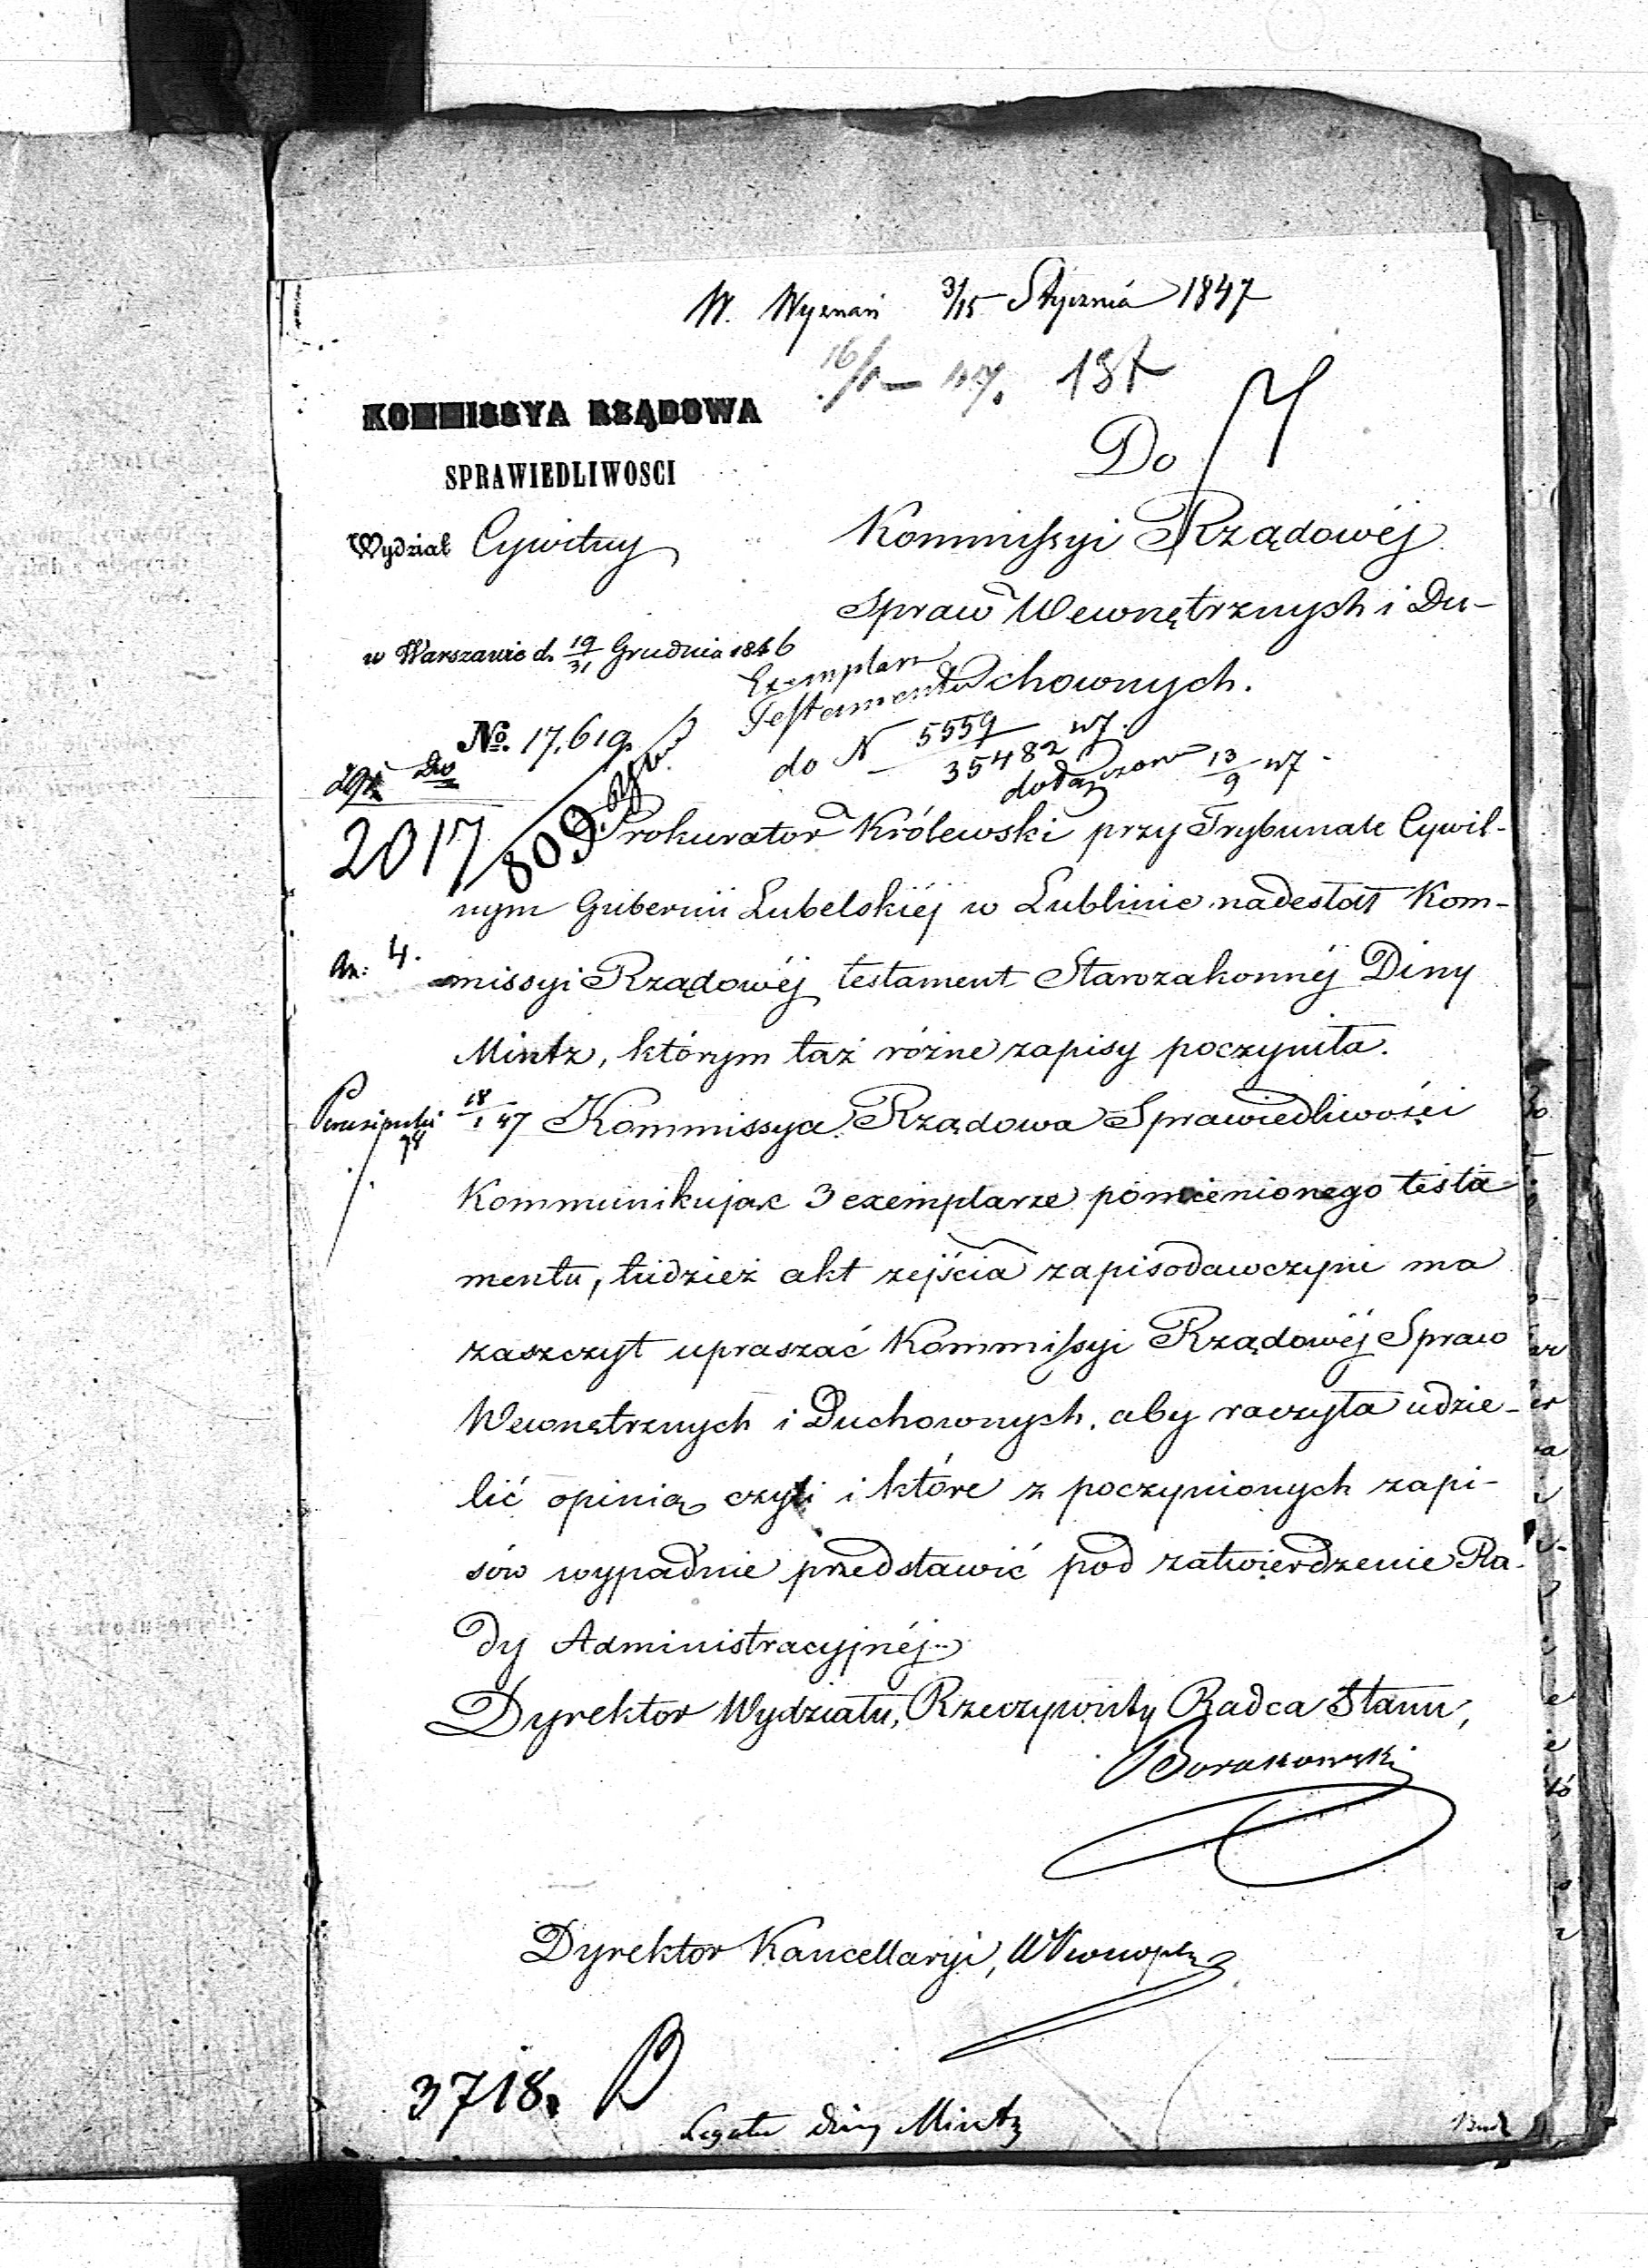 W. Wyznań 3/15 Stycznia 1847
16/1 – 47. 137
KOMMISSYA RZĄDOWA
SPRAWIEDLIWOSCI
Wydział Cywilny
w Warszawie d. 19/31 Grudnia 1846
No. 17,619.
Do
Kommissyi Rządowéj
Spraw Wewnętrznych i Du-
chownych.
Exemplarz
Testamentu
do N 5559/35482 47.
dołączono 13/9 47.
2017/809
Prokurator Królewski przy Trybunale Cywil-
nym Gubernii Lubelskiéj w Lublinie nadesłał Kom-
An: 4.
missyi Rządowéj testament Starozakonnéj Diny
Mintz, którym taż różne zapisy poczyniła.
18/1 47
Kommissya Rządowa Sprawiedliwości
Kommunikując 3 exemplarze pomienionego testa-
mentu, tudzież akt zejścia zapisodawczyni ma
zaszczyt upraszać Kommissyi Rządowéj Spraw
Wewnętrznych i Duchownych, aby raczyła udzie-
lić opinią czyli i które z poczynionych zapi-
sów wypadnie przedstawić pod zatwierdzenie Ra-
dy Administracyjnéj.
Dyrektor Wydziału, Rzeczywisty Radca Stanu,
Dyrektor Kancellaryi,
3718.
Legata Diny Mintz